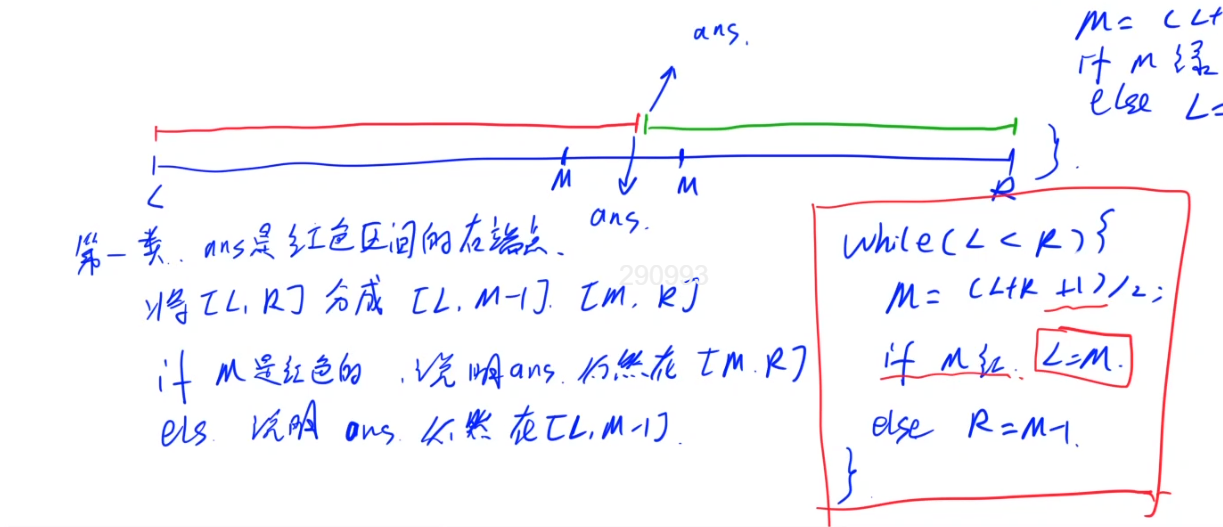 ans.
M= (L+
if M 绿
else L=
}.
L M M R
ans.
第一类. ans是红色区间的右端点.
将[L,R]分成 [L,M-1]. [M,R]
if M是红色的,说明ans.仍然在[M.R]
els. 说明 ans.仍然在[L,M-1].
290993
while(L<R){
M= (L+R +1)/2;
if M红. L=M.
else R=M-1.
}